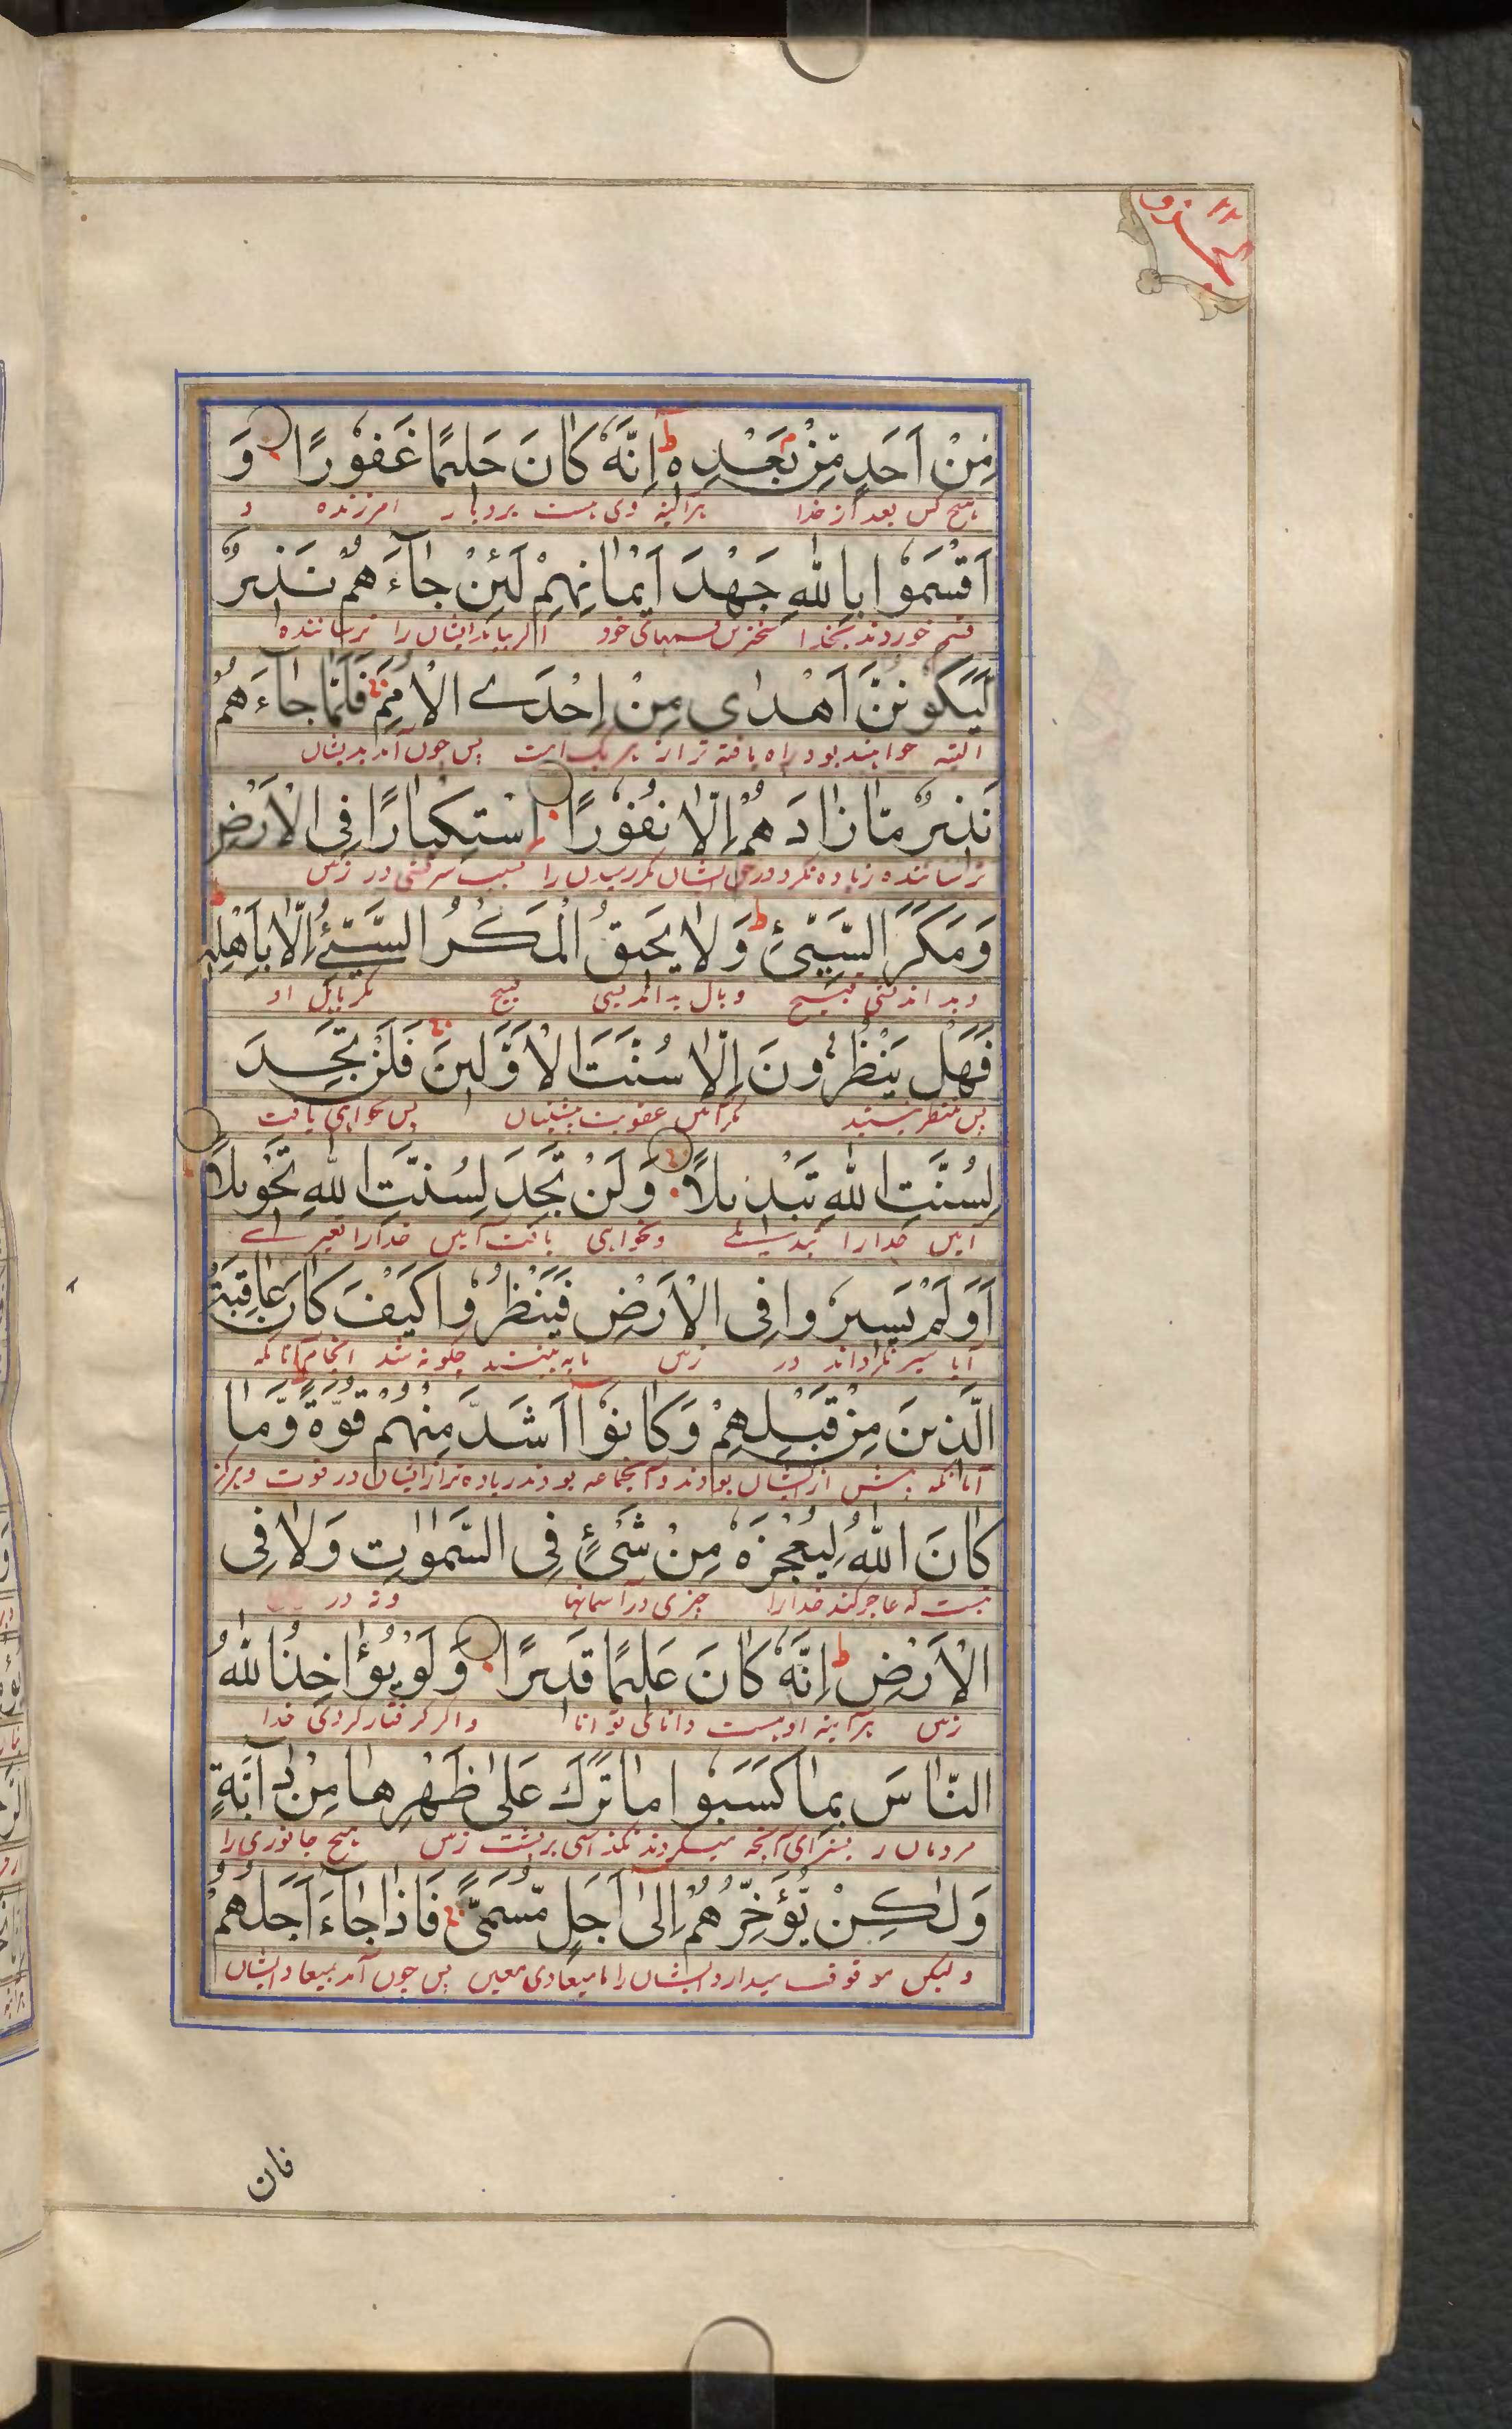 الجزو ٢٢
مِنْ اَحَدٍ مِّنْ بَعْدِهٖ ط اِنَّهٗ كَانَ حَلِيْمًا غَفُوْرًا وَ
هیچ کس بعد از خدا هرآئینه وی هست بردبار امرزنده و
اَقْسَمُوْا بِاللّٰهِ جَهْدَ اَيْمَانِهِمْ لَئِنْ جَآءَهُمْ نَذِيْرٌ
قسم خوردند بخدا سخترین قسمهائی خود اگر بیاید ایشان را ترساننده
لَّيَكُوْنُنَّ اَهْدٰى مِنْ اِحْدَے الْاُمَمِ فَلَمَّا جَآءَهُمْ
البته خواهند بود راه یافته تر از هر یک امت پس چون آمد بدیشان
نَذِيْرٌ مَّا زَادَهُمْ اِلَّا نُفُوْرًا اسْتِكْبَارًا فِى الْاَرْضِ
ترساننده زیاده نکرد در حق ایشان مگر رمیدن را بسبب سرکشی در زمین
وَمَكْرَ السَّيِّئِ ط وَلَا يَحِيْقُ الْمَكْرُ السَّيِّئُ اِلَّا بِاَهْلِهٖ ط
و بد اندیشی قبیح وبال بد اندیشی قبیح مگر باهل او
فَهَلْ يَنْظُرُوْنَ اِلَّا سُنَّتَ الْاَوَّلِيْنَ فَلَنْ تَجِدَ
پس منتظر نیستند مگر آئین عقوبت پیشینیان پس نخواهی یافت
لِسُنَّتِ اللّٰهِ تَبْدِيْلًا وَلَنْ تَجِدَ لِسُنَّتِ اللّٰهِ تَحْوِيْلًا
آئین خدا را تبدیلے و نخواهی یافت آئین خدا را تغیرے
اَوَلَمْ يَسِيْرُوْا فِى الْاَرْضِ فَيَنْظُرُوْا كَيْفَ كَانَ عَاقِبَةُ
آیا سیر نکرداند در زمین تا به بینند چگونه شد انجام آنانکه
الَّذِيْنَ مِنْ قَبْلِهِمْ وَكَانُوْٓا اَشَدَّ مِنْهُمْ قُوَّةً وَّمَا
آنانکه پیش از ایشان بودند و آنجماعه بودند زیاده تر از ایشان در قوت و هرگز
كَانَ اللّٰهُ لِيُعْجِزَهٗ مِنْ شَىْءٍ فِى السَّمٰوٰتِ وَلَا فِى
نیست که عاجز کند خدا را چیزی در آسمانها و نه در
الْاَرْضِ ط اِنَّهٗ كَانَ عَلِيْمًا قَدِيْرًا وَلَوْ يُؤَاخِذُ اللّٰهُ
زمین هرآینه او هست دانائی توانا و اگر گرفتار کردی خدا
النَّاسَ بِمَا كَسَبُوْا مَا تَرَكَ عَلٰى ظَهْرِهَا مِنْ دَآبَّةٍ
مردمان ر بسزای آنچه میکردند نگذاشتی بر پشت زمین هیچ جانوری را
وَلٰكِنْ يُّؤَخِّرُهُمْ اِلٰٓى اَجَلٍ مُّسَمًّى فَاِذَا جَآءَ اَجَلُهُمْ
و لیکن موقوف میدارد ایشان را تا میعادی معین پس چون آمد میعاد ایشان
فان